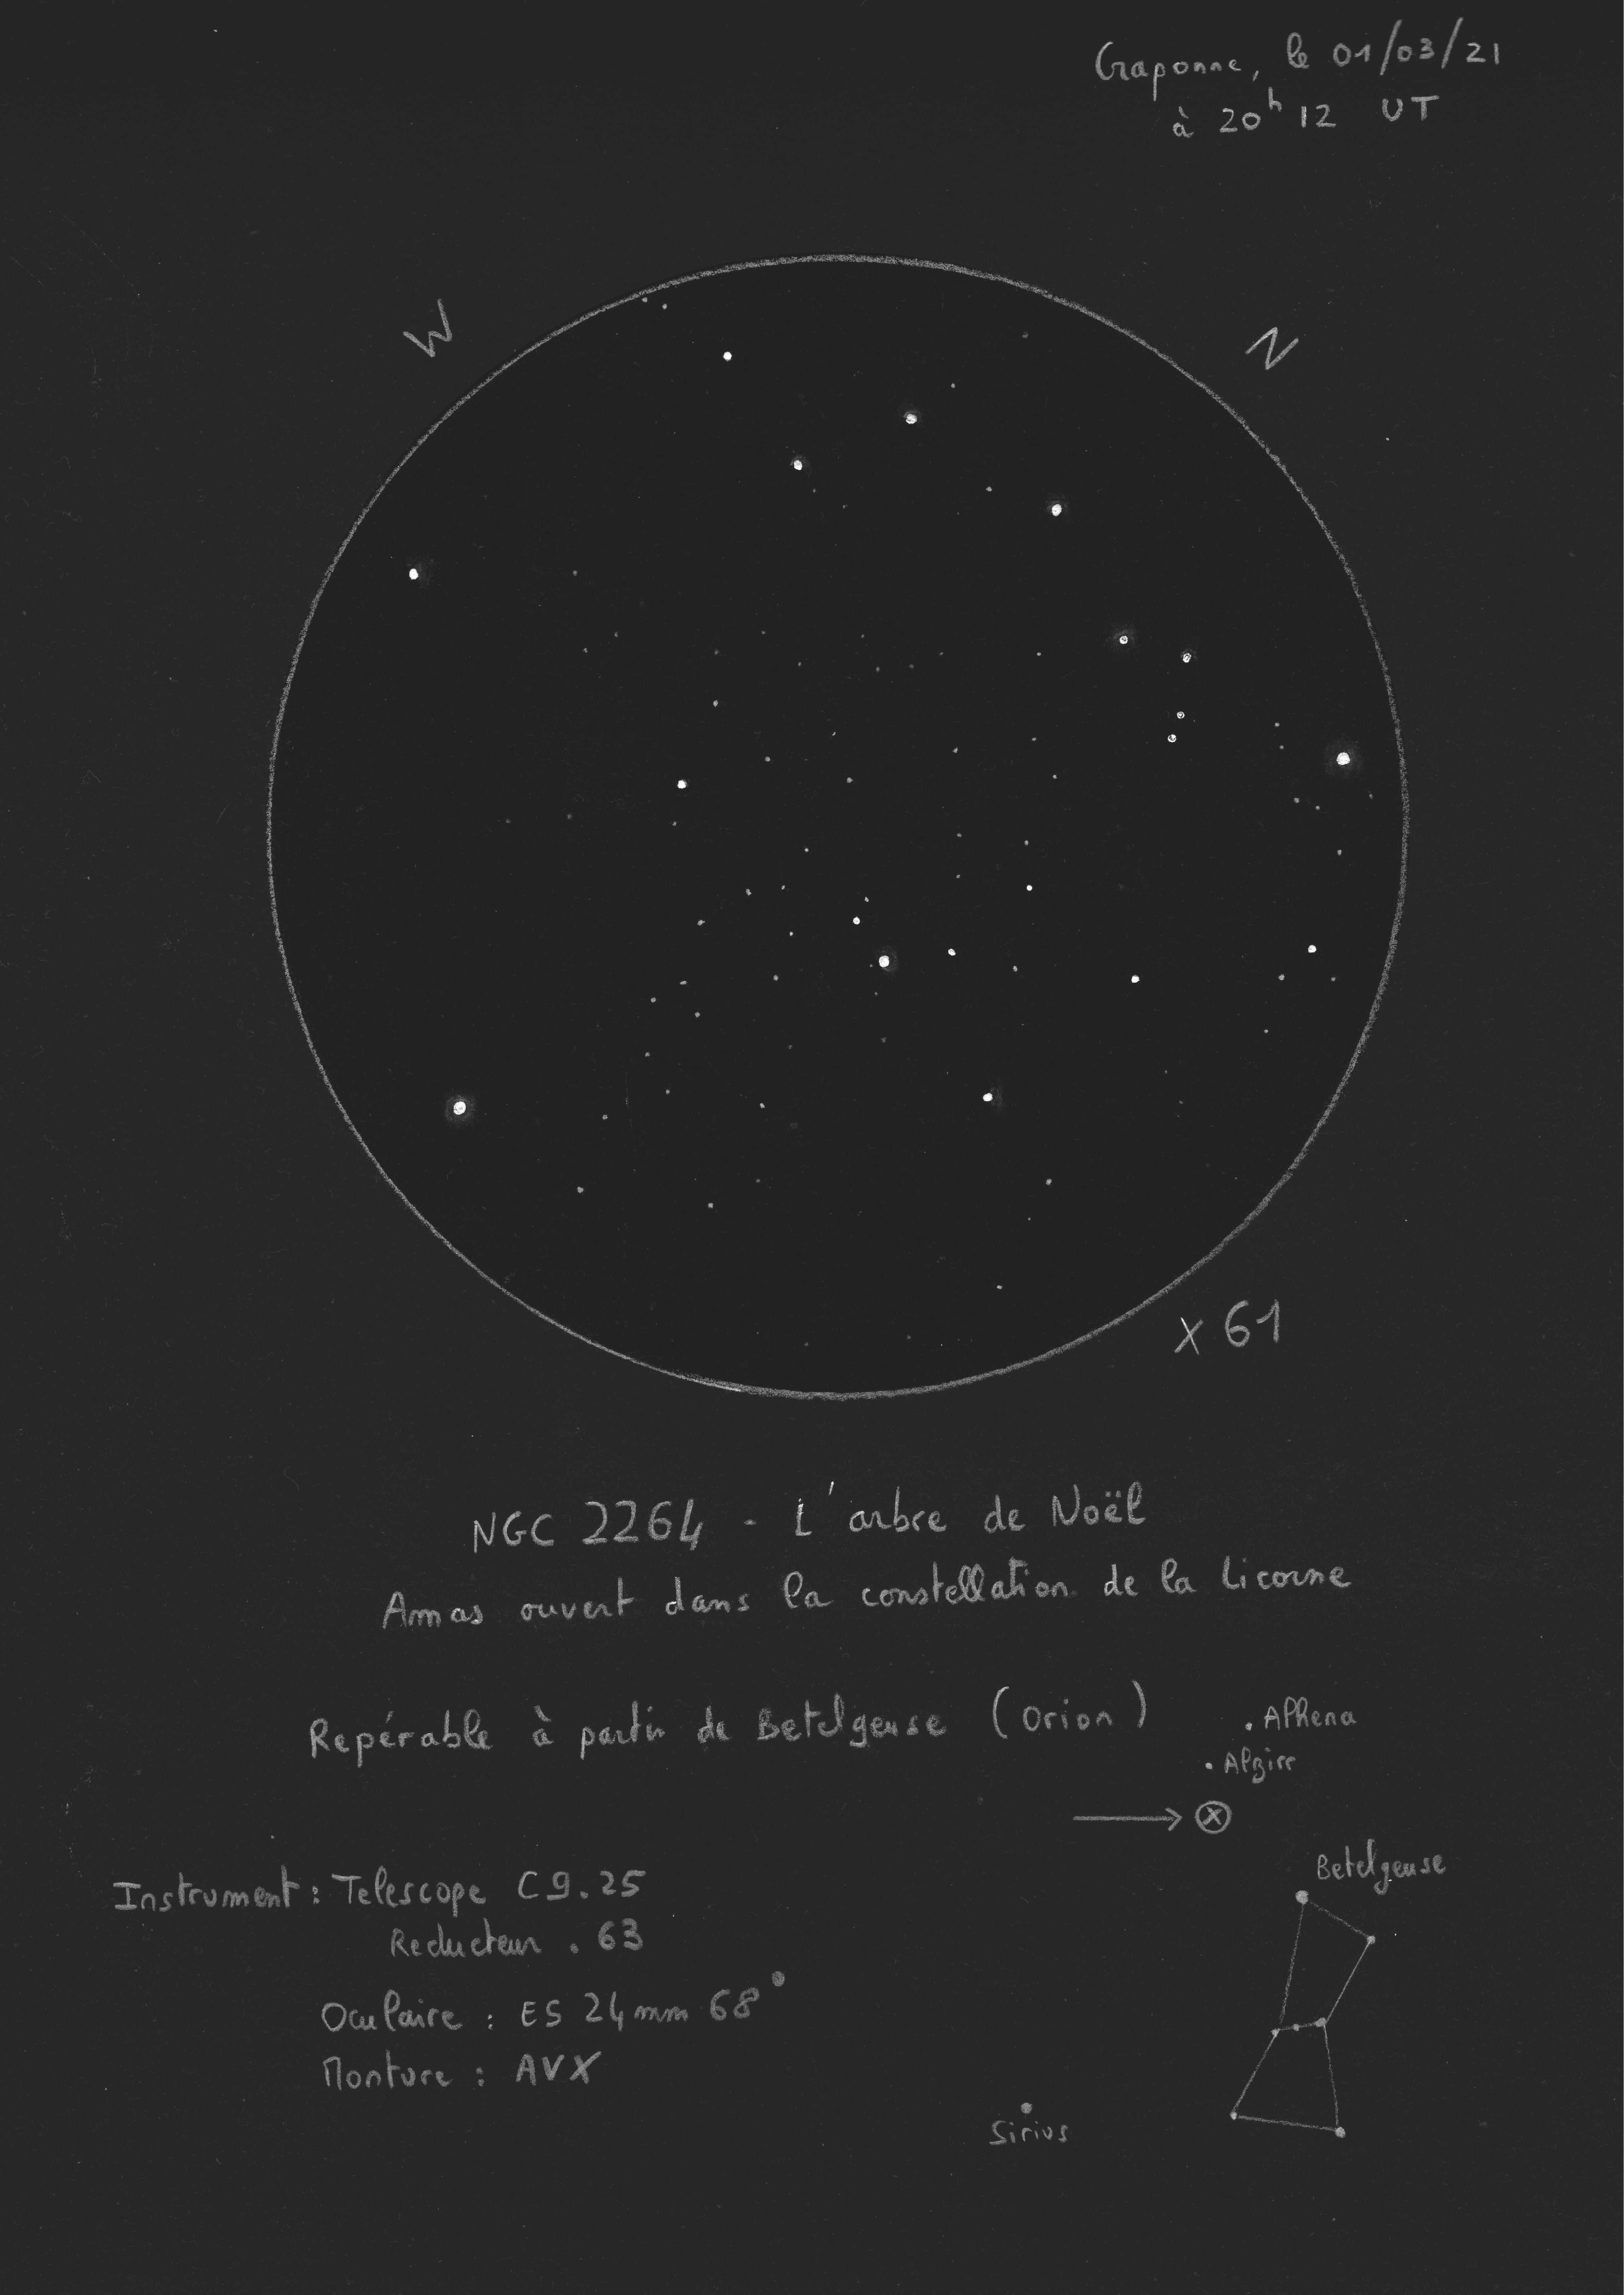 Craponne, le 01/03/21
à 20h 12 UT
W
N
X 61
NGC 2264 - L'arbre de Noël
Amas ouvert dans la constellation de la Licorne
Repérable à partir de Betelgeuse (Orion)
. Alhena
. Alzirr
→ ⊗
Betelgeuse
Instrument : Telescope C9.25
Reducteur .63
Oculaire : ES 24mm 68°
Monture : AVX
Sirius